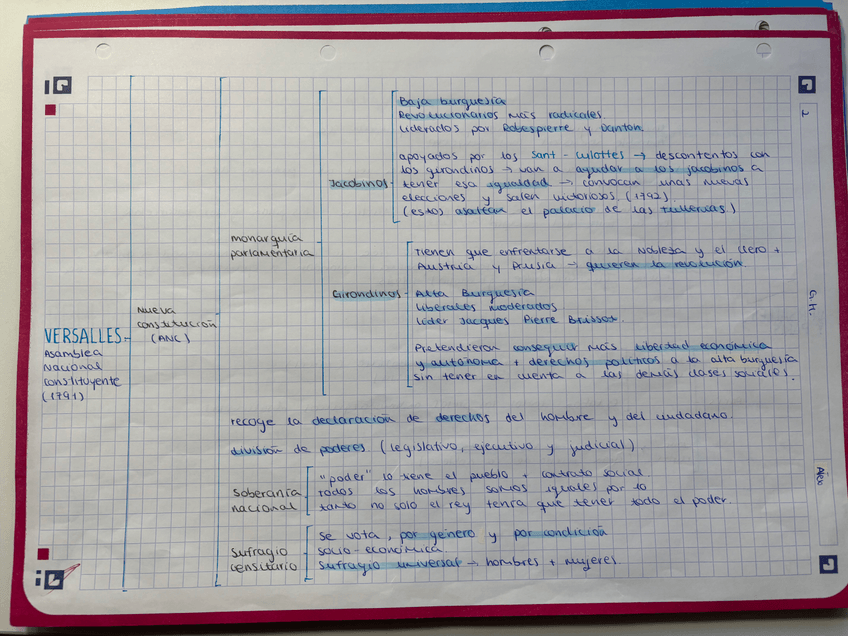 2
G.H.
Alex
VERSALLES
Asamblea
Nacional
Constituyente
(1791)
Nueva
constitución
(ANC)
monarquía
parlamentaria
Jacobinos
Baja burguesía
Revolucionarios más radicales.
Liderados por Robespierre y Danton.
apoyados por los Sant-culottes → descontentos con
los girondinos → van a ayudar a los jacobinos a
tener esa igualdad → convocan unas nuevas
elecciones y salen victoriosos (1792)
(estos asaltan el palacio de las Tullerías)
Girondinos
Tienen que enfrentarse a la Nobleza y el Clero +
Austria y Prusia → quieren la revolución
Alta Burguesía
Liberales moderados
Líder Jacques Pierre Brissot.
Pretendieron conseguir más libertad económica
y autónoma + derechos políticos a la alta burguesía
sin tener en cuenta a las demás clases sociales.
recoge la declaración de derechos del hombre y del ciudadano.
división de poderes (legislativo, ejecutivo y judicial)
Soberanía
nacional
"poder" lo tiene el pueblo + contrato social.
Todos los hombres somos iguales por lo
tanto no solo el rey tenía que tener todo el poder.
Sufragio
censitario
Se vota, por género y por condición
socio-económica
Sufragio universal → hombres + mujeres.